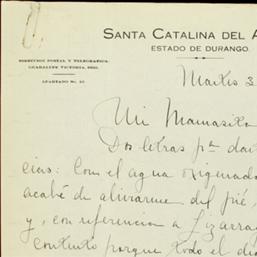 SANTA CATALINA DEL A
ESTADO DE DURANGO.
DIRECCION POSTAL Y TELEGRAFICA:
GUADALUPE VICTORIA, DGO.
APARTADO No. 
Martes 3
Mi Mamasita
Dos letras pa dar
cias: Con el agua oxigenad
acabé de aliviarme del pié,
y, con referencia a Lizarra
contento porque todo el dí